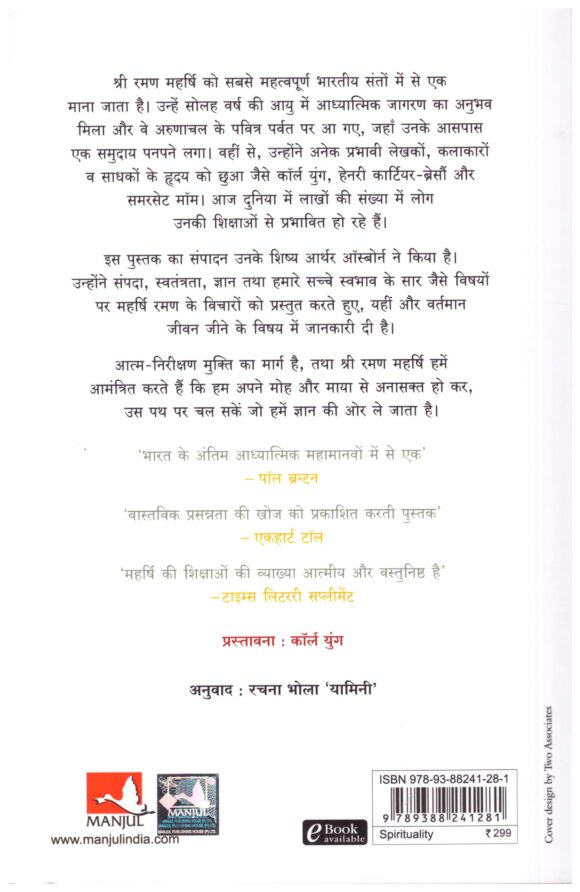 श्री रमण महर्षि को सबसे महत्वपूर्ण भारतीय संतों में से एक
माना जाता है। उन्हें सोलह वर्ष की आयु में आध्यात्मिक जागरण का अनुभव
मिला और वे अरुणाचल के पवित्र पर्वत पर आ गए, जहाँ उनके आसपास
एक समुदाय पनपने लगा। वहीं से, उन्होंने अनेक प्रभावी लेखकों, कलाकारों
व साधकों के हृदय को छुआ जैसे कॉर्ल युंग, हेनरी कार्टियर-ब्रेसौं और
समरसेट मॉम। आज दुनिया में लाखों की संख्या में लोग
उनकी शिक्षाओं से प्रभावित हो रहे हैं।
इस पुस्तक का संपादन उनके शिष्य आर्थर ऑस्बोर्न ने किया है।
उन्होंने संपदा, स्वतंत्रता, ज्ञान तथा हमारे सच्चे स्वभाव के सार जैसे विषयों
पर महर्षि रमण के विचारों को प्रस्तुत करते हुए, यहीं और वर्तमान
जीवन जीने के विषय में जानकारी दी है।
आत्म-निरीक्षण मुक्ति का मार्ग है, तथा श्री रमण महर्षि हमें
आमंत्रित करते हैं कि हम अपने मोह और माया से अनासक्त हो कर,
उस पथ पर चल सकें जो हमें ज्ञान की ओर ले जाता है।
'भारत के अंतिम आध्यात्मिक महामानवों में से एक'
– पॉल ब्रन्टन
'वास्तविक प्रसन्नता की खोज को प्रकाशित करती पुस्तक'
– एकहार्ट टॉल
'महर्षि की शिक्षाओं की व्याख्या आत्मीय और वस्तुनिष्ठ है'
–टाइम्स लिटररी सप्लीमेंट
प्रस्तावना : कॉर्ल युंग
अनुवाद : रचना भोला 'यामिनी'
MANJUL
www.manjulindia.com
MANJUL
MANJUL PUBLISHING HOUSE (P) LTD.
eBook
available
ISBN 978-93-88241-28-1
9 789388 241281
Spirituality ₹ 299
Cover design by Two Associates